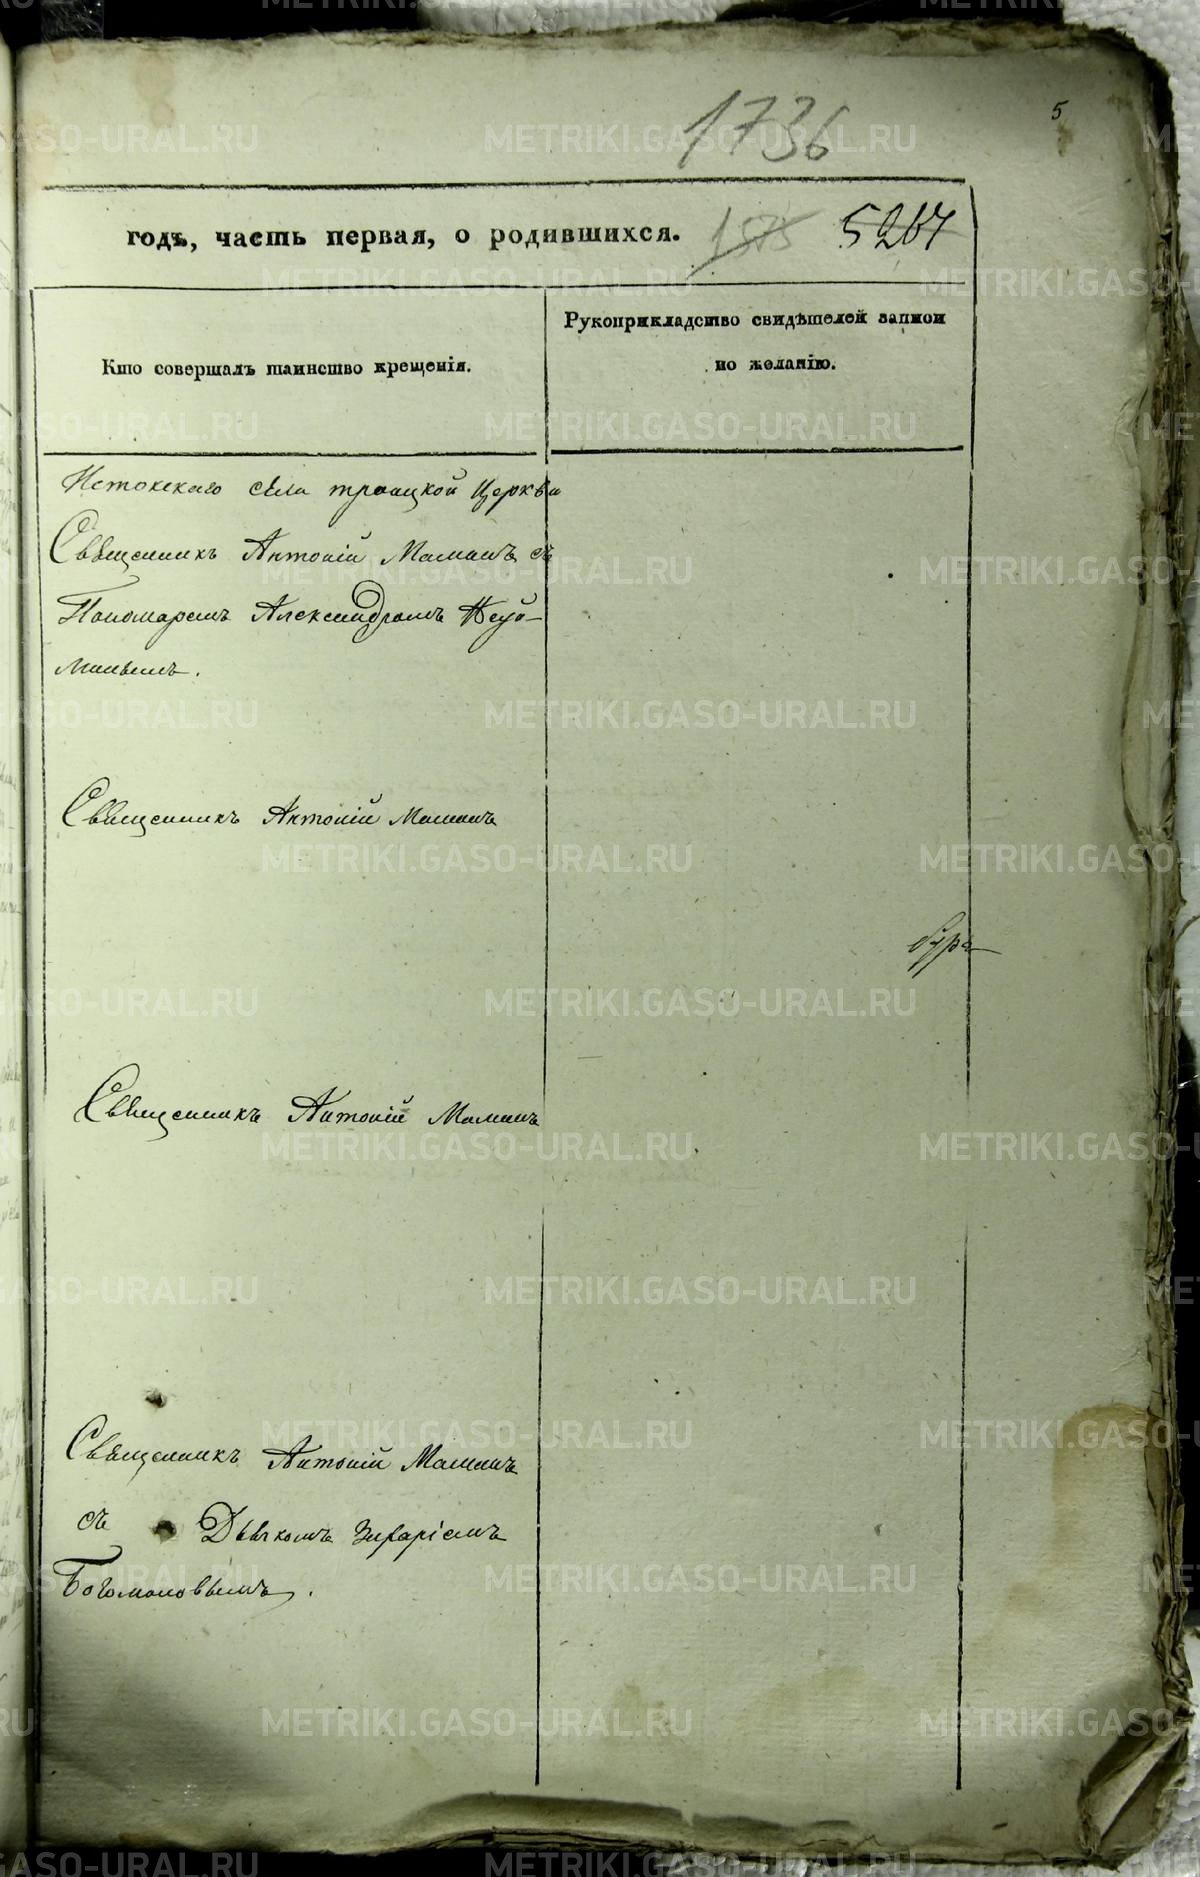 1736
5
годъ, часть первая, о родившихся. 1575 5267
Кто совершалъ таинство крещенія.
Рукоприкладство свидѣтелей записи
по желанію.
Истокскаго села троицкой Церкви
Священникъ Антоній Маминъ съ
Пономаремъ Александромъ
Священникъ Антоній Маминъ
Священникъ Антоній Маминъ
Священникъ Антоній Маминъ
съ Дьячкомъ
Богомоловымъ.
METRIKI.GASO-URAL.RU